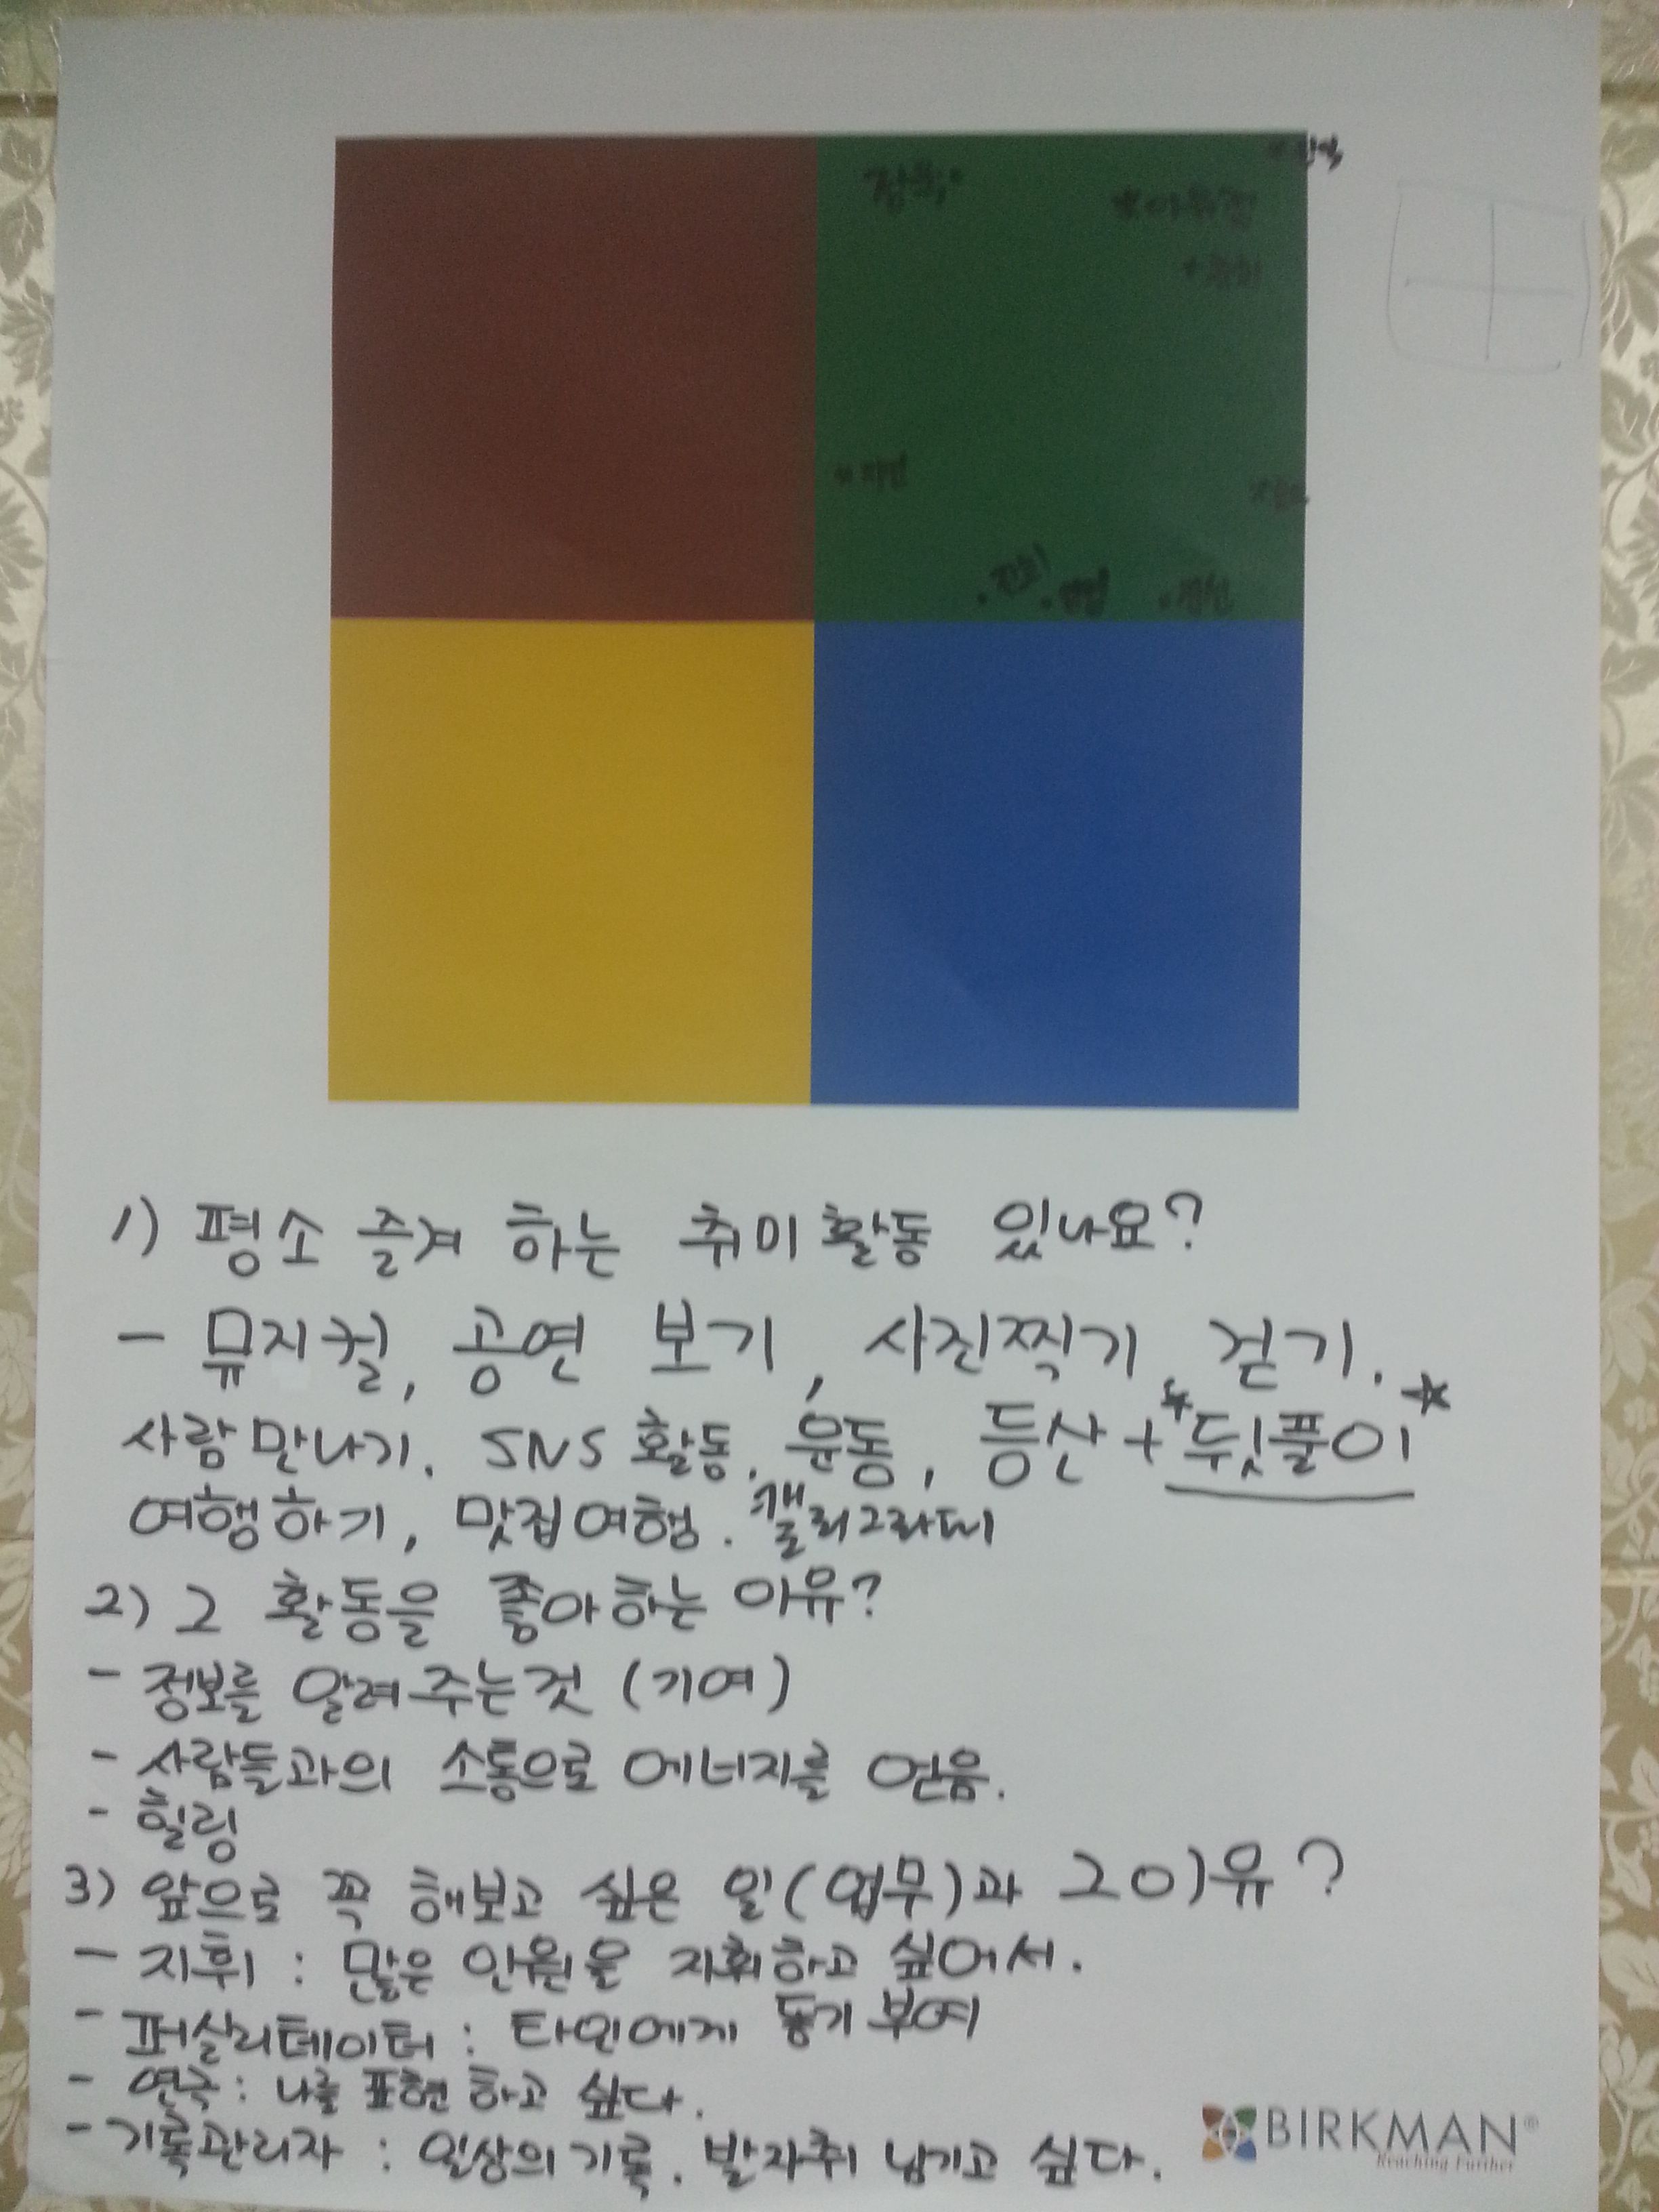 1) 평소 즐겨 하는 취미활동 있나요?
- 뮤지컬, 공연 보기, 사진찍기, 걷기.
사람만나기. SNS 활동, 운동, 등산+*뒷풀이*
여행하기, 맛집여행. 캘리그라피
2) 그 활동을 좋아하는 이유?
- 정보를 알려주는것 (기여)
- 사람들과의 소통으로 에너지를 얻음.
- 힐링
3) 앞으로 꼭 해보고 싶은 일(업무)과 그이유?
- 지휘 : 많은 인원을 지휘하고 싶어서.
- 퍼실리테이터 : 타인에게 동기부여
- 연극 : 나를 표현하고 싶다.
- 기록관리자 : 일상의 기록. 발자취 남기고 싶다.
BIRKMAN®
Reaching Further